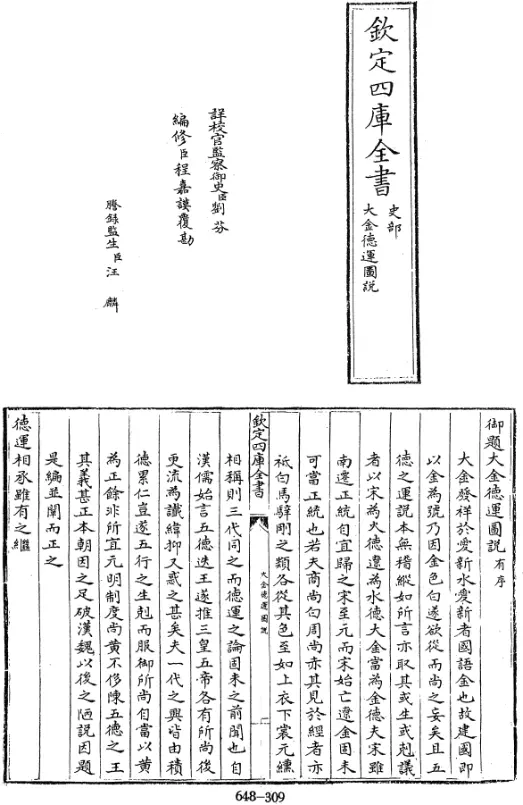 欽定四庫全書
史部
大金德運圖說
詳校官監察御史臣劉芬
編修臣程嘉謨覆勘
謄錄監生臣汪麟
御題大金德運圖說 有序
大金發祥於愛新水愛新者國語金也故建國即
以金為號乃因金色白遂欲從而尚之妄矣且五
德之運說本無稽縱如所言亦取其或生或剋議
者以宋為火德遼為水德大金當為金德夫宋雖
南遷正統自宜歸之宋至元而宋始亡遼金固未
可當正統也若夫商尚白周尚赤其見於經者亦
祇白馬騂剛之類各從其色至如上衣下裳元纁
欽定四庫全書
大金德運圖說
一
相稱則三代同之而德運之論固未之前聞也自
漢儒始言五德迭王遂推三皇五帝各有所尚後
更流為讖緯抑又惑之甚矣夫一代之興皆由積
德累仁豈遂五行之生剋而服御所尚自當以黃
為正餘非所宜元明制度尚黃不侈陳五德之王
其義甚正本朝因之足破漢魏以後之陋說因題
是編並闡而正之
德運相承雖有之繼
648-309